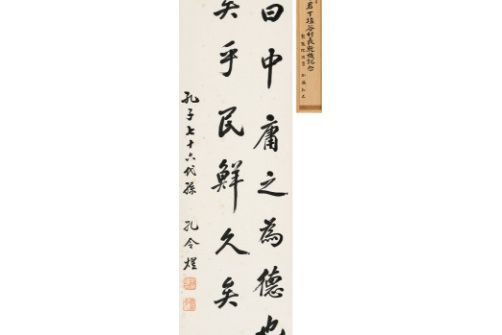 曰中庸之為德也
矣乎民鮮久矣
孔子七十六代孫 孔令煜